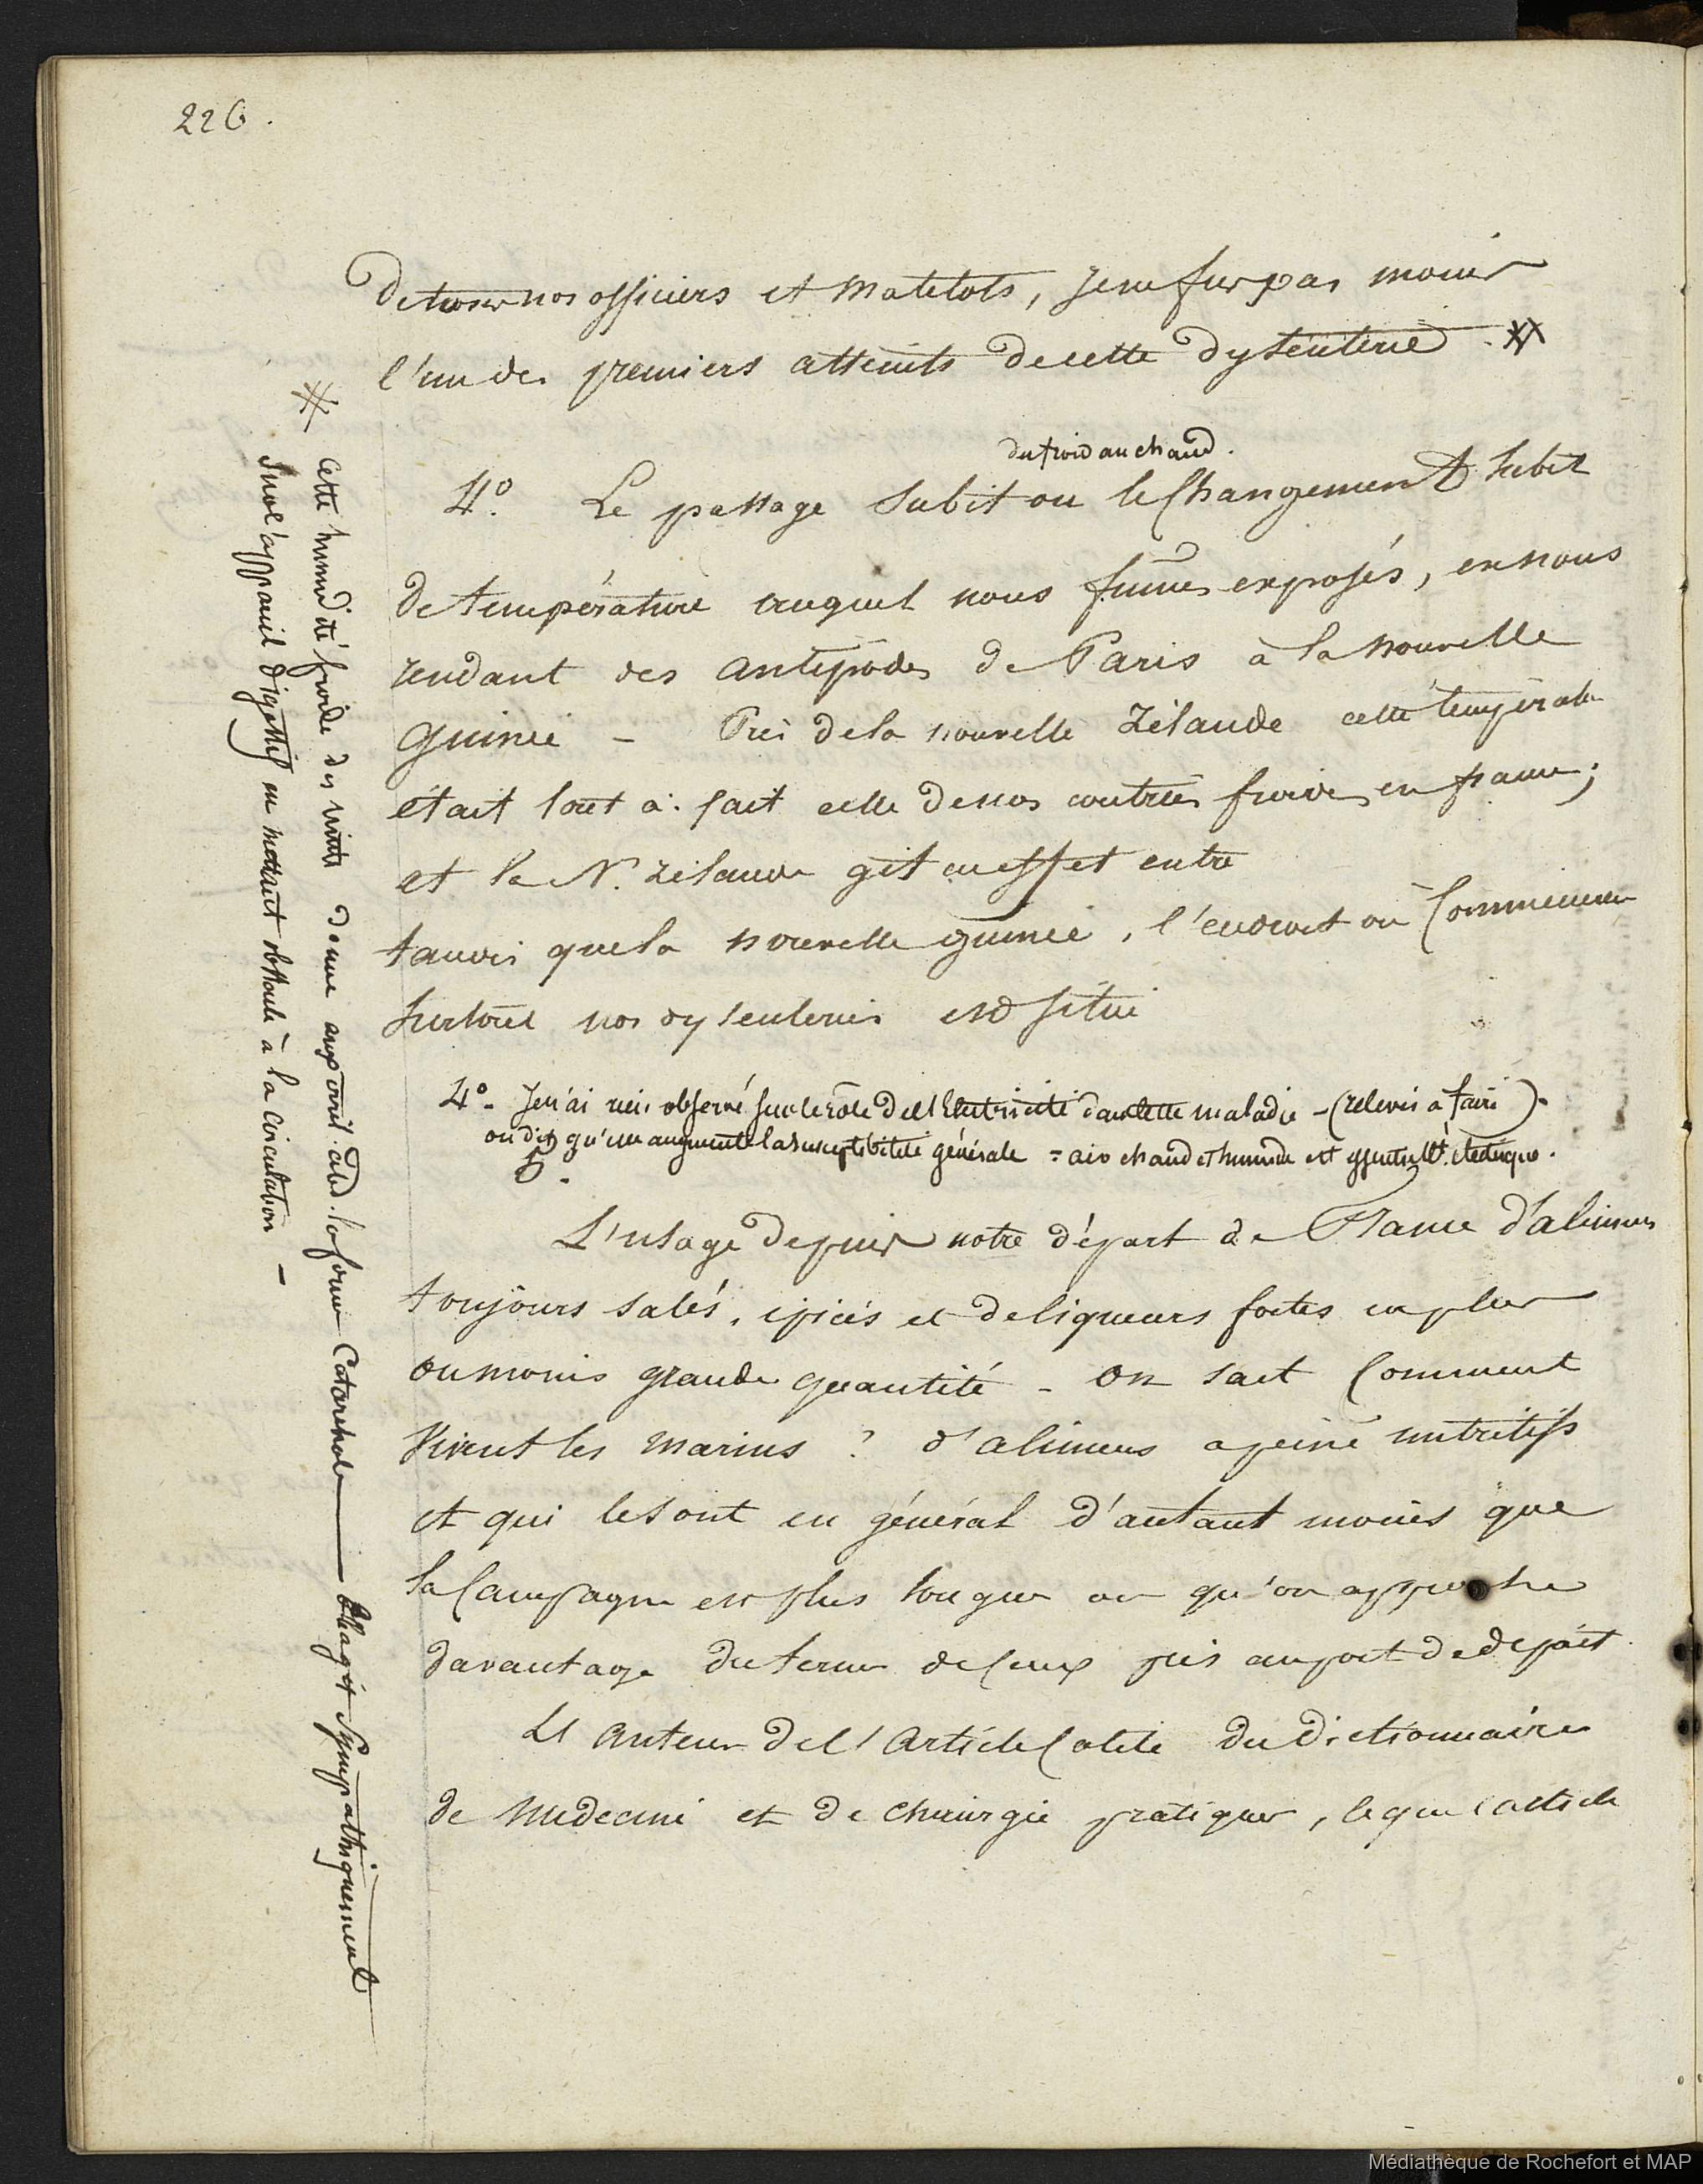 226.
De tous nos officiers et matelots, je ne fus pas moins
l'un des premiers atteints de cette dysenterie. #
du froid au chaud.
4.° Le passage subit ou le changement subit
de température auquel nous fumes exposés, en nous
rendant des antipodes de Paris à la nouvelle
Guinée - Près de la nouvelle Zélande cette température
était tout à fait celle de nos contrées froides en france;
et la N. Zélande git en effet entre
tandis que la nouvelle guinée, l'endroit où commencèrent
surtout nos dysenteries est situé
4° - Je n'ai rien observé sur le rôle de l'Electricité dans cette maladie - (relevés à faire).
on dit qu'elle augmente la susceptibilité générale = air chaud et humide est essentiellt. électrique.
5.
L'usage depuis notre départ de France d'alimens
toujours salés, épicés et de liqueurs fortes en plus
ou moins grande quantité - on sait comment
vivent les marins ? d'alimens a peine nutritifs
et qui le sont en général d'autant moins que
la Campagne est plus longue ou qu'on approche
davantage du terme de ceux pris au port de départ.
L'auteur de l'article Colite du Dictionnaire
de médecine et de chirurgie pratiques, lequel article
# Cette humidité froide des nuits donne aux mal. abd. la forme Catarrhale — elle agit sympathiquement
sur l'appareil digestif en mettant obstacle à la circulation -
Médiathèque de Rochefort et MAP